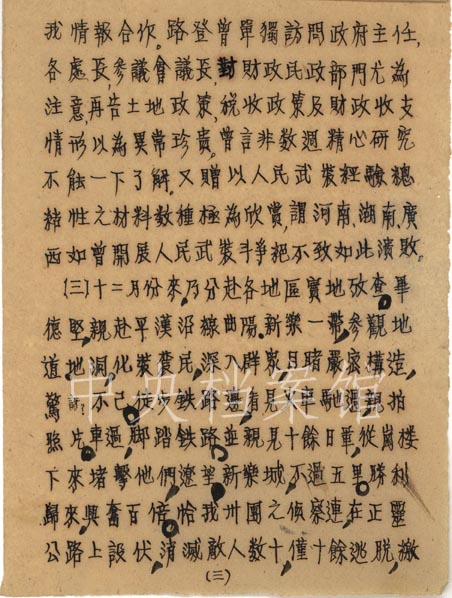 我情報合作。路登曾單獨訪問政府主任,
各處長,參議會議長,對財政民政部門尤為
注意,再告土地政策,稅收政策及財政收支
情形以為異常珍貴。曾言非数週精心研究
不能一下了解。又贈以人民武裝經驗總
結性之材料数種極為欣賞,謂河南、湖南、廣
西如曾開展人民武裝斗爭絕不致如此潰敗。
(三)十二月份來,乃分赴各地區實地攷查。畢
德堅親赴平漢沿線曲陽、新樂一帶,參觀地
道,地洞,化裝農民,深入群衆,目睹嚴密構造,
驚訝不已,從鉄路邊看見火車馳過,親拍
照片,車過,脚踏鉄路並親見十餘日華,從崗楼
下來堵擊他們,遼望新樂城不過五里,勝利
歸來,興奮百倍。恰我卅團之偵察連在正靈
公路上設伏,消滅敵人数十,僅十餘逃脱,撤
(三)
中央档案馆